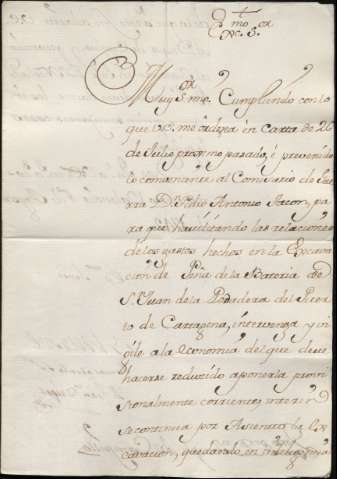 Exmo Sor
Muy Sor mio. Cumpliendo con lo
que V.S. me ordena en Carta de 26
de Julio proximo pasado, é prevenido
lo combeniente al Comisario de Gue
rra Dn. Pedro Antonio para
que havilitando las relaciones
de los gastos hechos en la Excava
cion de Peña de la Bateria de
Sn. Juan de la Podadera del Puer
to de Cartagena, intervenga y vi
gile a la economia del que deve
hacerse reducido a ponerla provi
sionalmente corriente,
se continua por Asiento la Ex
cavacion, quedando en